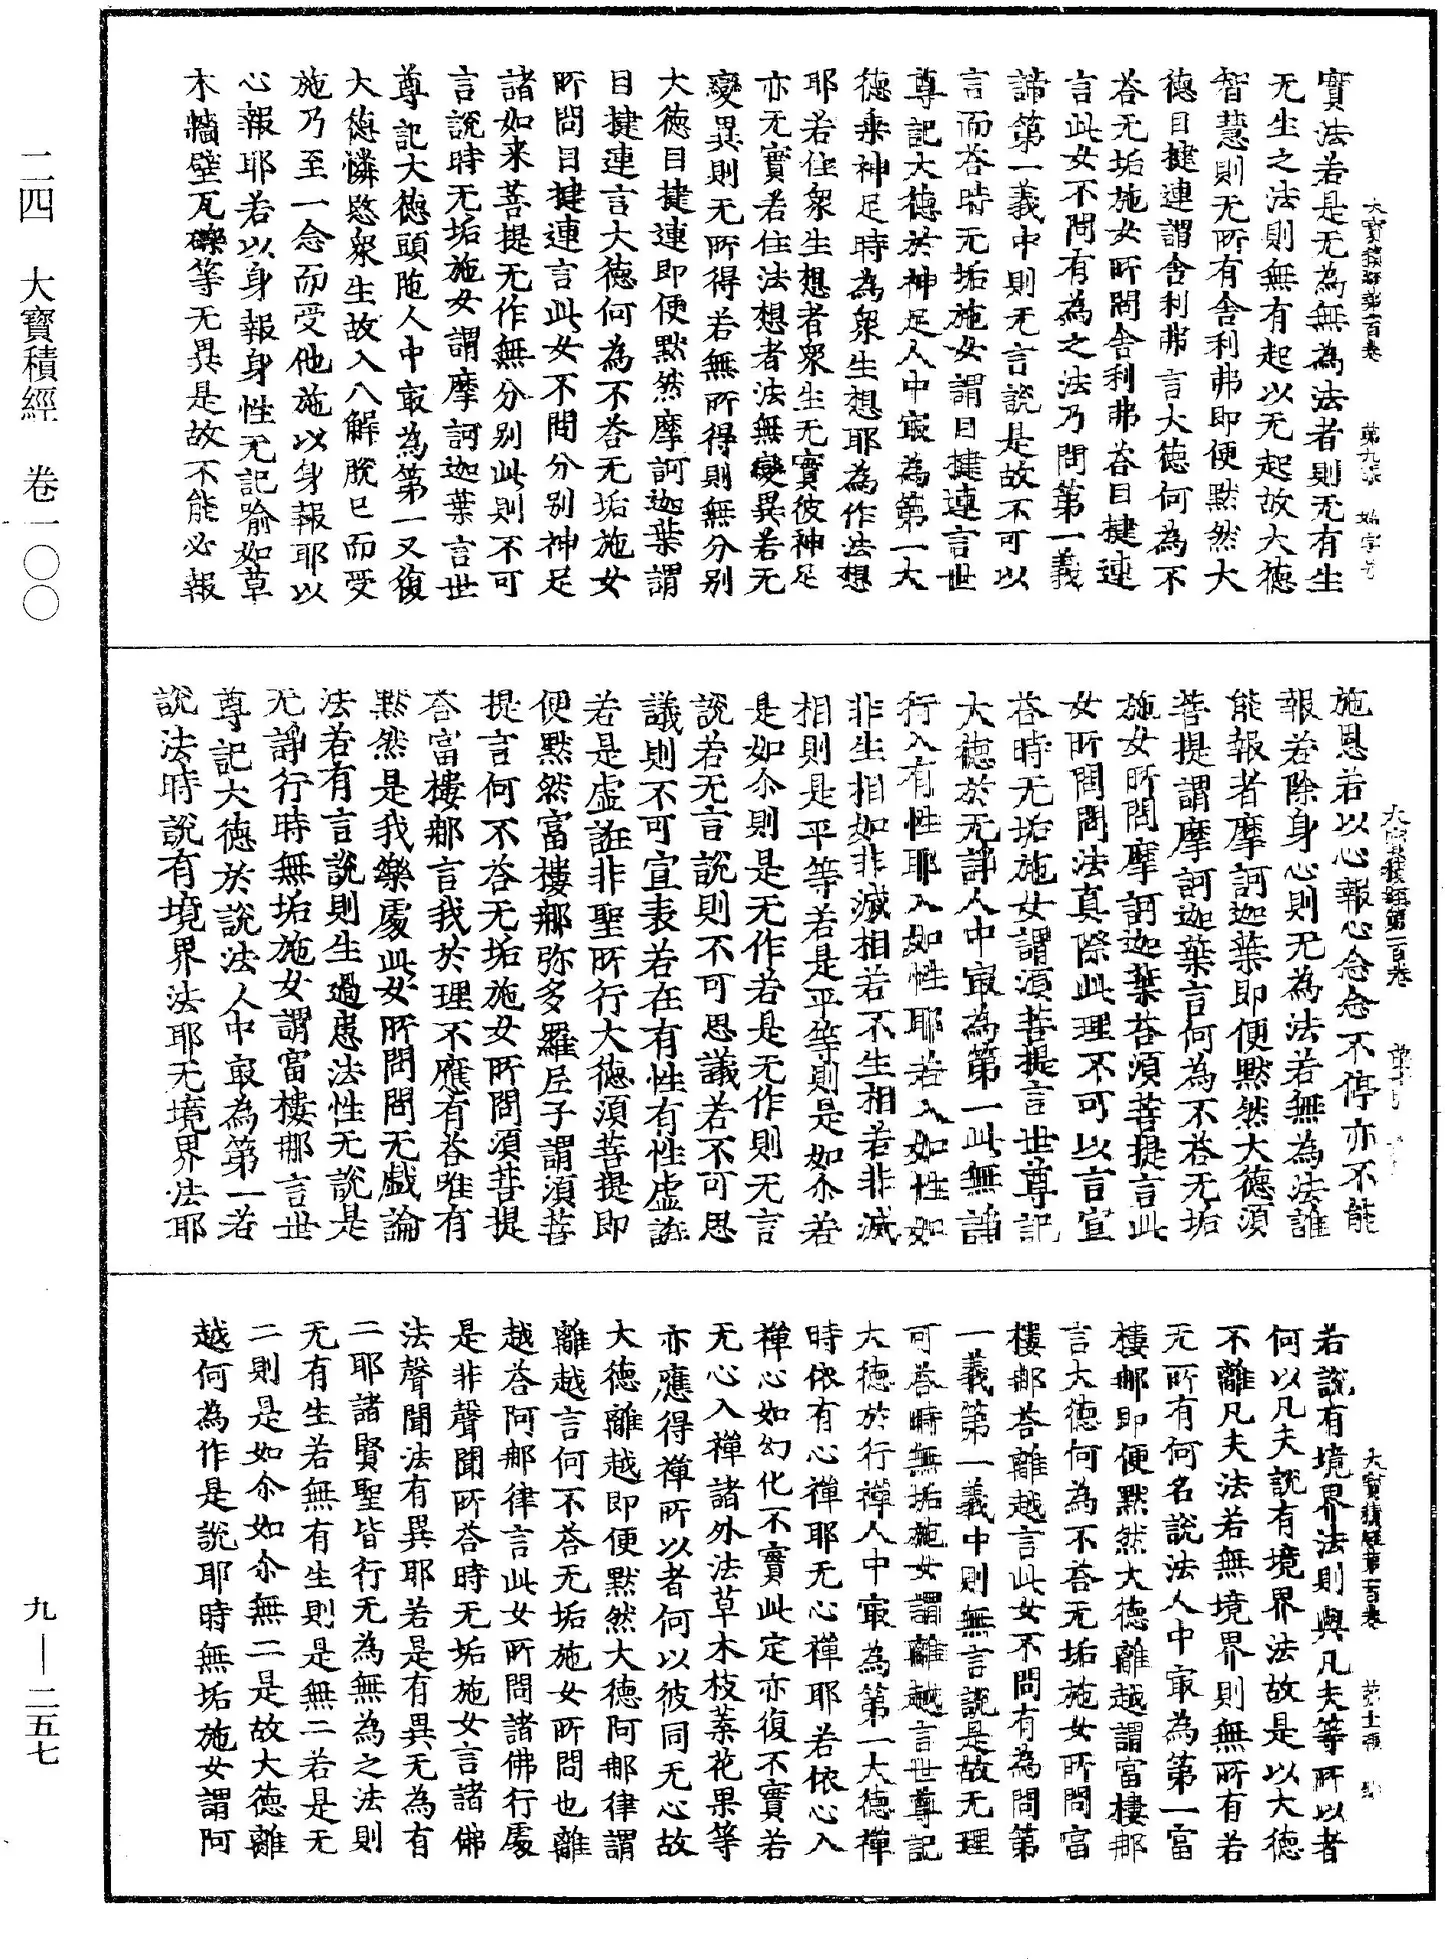 大寶積經第一百卷 第九張 始字号
實法若是无為無為法者則无有生
无生之法則無有起以无起故大德
智慧則无所有舍利弗即便默然大
德目揵連謂舍利弗言大德何為不
荅无垢施女所問舍利弗荅目揵連
言此女不問有為之法乃問第一義
諦第一義中則无言說是故不可以
言而荅時无垢施女謂目揵連言世
尊記大德於神足人中㝡為第一大
德乗神足時為衆生想耶為作法想
耶若住衆生想者衆生无實彼神足
亦无實若住法想者法無變異若无
變異則无所得若無所得則無分別
大德目揵連即便默然摩訶迦葉謂
目揵連言大德何為不荅无垢施女
所問目揵連言此女不問分別神足
諸如来菩提无作無分別此則不可
言說時无垢施女謂摩訶迦葉言世
尊記大德頭陁人中㝡為第一又復
大德憐愍衆生故入八解脫已而受
施乃至一念而受他施以身報耶以
心報耶若以身報身性无記喻如草
木牆壁瓦礫等无異是故不能必報
大寶積經第一百卷
施恩若以心報心念念不停亦不能
報若除身心則无為法若無為法誰
能報者摩訶迦葉即便默然大德湏
菩提謂摩訶迦葉言何為不荅无垢
施女所問摩訶迦葉荅湏菩提言此
女所問問法真際此理不可以言宣
荅時无垢施女謂湏菩提言世尊記
大德於无諍人中㝡為第一此無諍
行入有性耶入如性耶若入如性如
非生相如非滅相若不生相若非滅
相則是平等若是平等則是如尒若
是如尒則是无作若是无作則无言
說若无言說則不可思議若不可思
議則不可宣表若在有性有性虛誑
若是虛誑非聖所行大德湏菩提即
便默然富樓那弥多羅尼子謂湏菩
提言何不荅无垢施女所問湏菩提
荅富樓那言我於理不應有荅唯有
默然是我樂處此女所問問无戲論
法若有言說則生過患法性无說是
无諍行時無垢施女謂富樓那言世
尊記大德於說法人中㝡為第一若
說法時說有境界法耶无境界法耶
大寶積經第一百卷 第十一張
若說有境界法則與凡夫等所以者
何以凡夫說有境界法故是以大德
不離凡夫法若無境界則無所有若
无所有何名說法人中㝡為第一富
樓那即便默然大德離越謂富樓那
言大德何為不荅无垢施女所問富
樓那荅離越言此女不問有為問第
一義第一義中則無言說是故无理
可荅時無垢施女謂離越言世尊記
大德於行禪人中㝡為第一大德禪
時依有心禪耶无心禪耶若依心入
禪心如幻化不實此定亦復不實若
无心入禪諸外法草木枝葉花果等
亦應得禪所以者何以彼同无心故
大德離越即便默然大德阿那律謂
離越言何不荅无垢施女所問也離
越荅阿那律言此女所問諸佛行處
是非聲聞所荅時无垢施女言諸佛
法聲聞法有異耶若是有異无為有
二耶諸賢聖皆行无為無為之法則
无有生若無有生則是無二若是无
二則是如尒如尒無二是故大德離
越何為作是說耶時無垢施女謂阿
二四 大寶積經 卷一〇〇
九—二五七